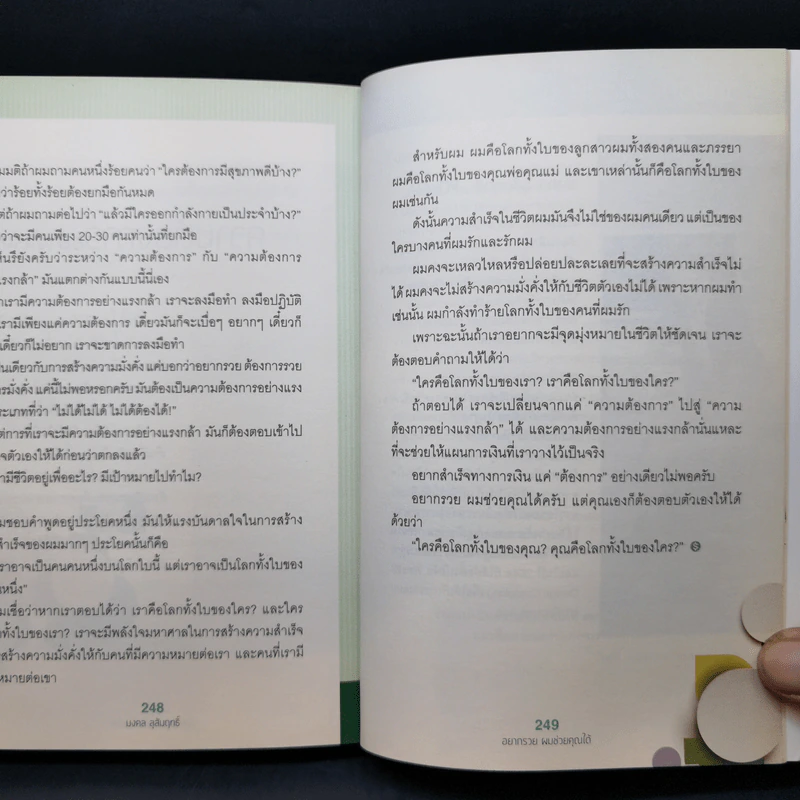 มมติถ้าผมถามคนหนึ่งร้อยคนว่า “ใครต้องการมีสุขภาพดีบ้าง?”
ว่าร้อยทั้งร้อยต้องยกมือกันหมด
ต่ถ้าผมถามต่อไปว่า “แล้วมีใครออกกำลังกายเป็นประจำบ้าง?”
ว่าจะมีคนเพียง 20-30 คนเท่านั้นที่ยกมือ
ห็นรึยังครับว่าระหว่าง “ความต้องการ” กับ “ความต้องการ
แรงกล้า” มันแตกต่างกันแบบนี้นี่เอง
าเรามีความต้องการอย่างแรงกล้า เราจะลงมือทำ ลงมือปฏิบัติ
เรามีเพียงแค่ความต้องการ เดี๋ยวมันก็จะเบื่อๆ อยากๆ เดี๋ยวก็
เดี๋ยวก็ไม่อยาก เราจะขาดการลงมือทำ
นเดียวกับการสร้างความมั่งคั่ง แค่บอกว่าอยากรวย ต้องการรวย
ารมั่งคั่ง แค่นี้ไม่พอหรอกครับ มันต้องเป็นความต้องการอย่างแรง
ระเภทที่ว่า “ไม่ได้ไม่ได้ ไม่ได้ต้องได้!”
ต่การที่เราจะมีความต้องการอย่างแรงกล้า มันก็ต้องตอบเข้าไป
จตัวเองให้ได้ก่อนว่าตกลงแล้ว
ามีชีวิตอยู่เพื่ออะไร? มีเป้าหมายไปทำไม?
มชอบคำพูดอยู่ประโยคหนึ่ง มันให้แรงบันดาลใจในการสร้าง
สำเร็จของผมมากๆ ประโยคนั้นก็คือ
ราอาจเป็นคนคนหนึ่งบนโลกใบนี้ แต่เราอาจเป็นโลกทั้งใบของ
นหนึ่ง”
มเชื่อว่าหากเราตอบได้ว่า เราคือโลกทั้งใบของใคร? และใคร
ทั้งใบของเรา? เราจะมีพลังใจมหาศาลในการสร้างความสำเร็จ
สร้างความมั่งคั่งให้กับคนที่มีความหมายต่อเรา และคนที่เรามี
หมายต่อเขา
248
มงคล ลุสัมฤทธิ์
สำหรับผม ผมคือโลกทั้งใบของลูกสาวผมทั้งสองคนและภรรยา
ผมคือโลกทั้งใบของคุณพ่อคุณแม่ และเขาเหล่านั้นก็คือโลกทั้งใบของ
ผมเช่นกัน
ดังนั้นความสำเร็จในชีวิตผมมันจึงไม่ใช่ของผมคนเดียว แต่เป็นของ
ใครบางคนที่ผมรักและรักผม
ผมคงจะเหลวไหลหรือปล่อยปละละเลยที่จะสร้างความสำเร็จไม่
ได้ ผมคงจะไม่สร้างความมั่งคั่งให้กับชีวิตตัวเองไม่ได้ เพราะหากผมทำ
เช่นนั้น ผมกำลังทำร้ายโลกทั้งใบของคนที่ผมรัก
เพราะฉะนั้นถ้าเราอยากจะมีจุดมุ่งหมายในชีวิตให้ชัดเจน เราจะ
ต้องตอบคำถามให้ได้ว่า
“ใครคือโลกทั้งใบของเรา? เราคือโลกทั้งใบของใคร?”
ถ้าตอบได้ เราจะเปลี่ยนจากแค่ “ความต้องการ” ไปสู่ “ความ
ต้องการอย่างแรงกล้า” ได้ และความต้องการอย่างแรงกล้านั่นแหละ
ที่จะช่วยให้แผนการเงินที่เราวางไว้เป็นจริง
อยากสำเร็จทางการเงิน แค่ “ต้องการ” อย่างเดียวไม่พอครับ
อยากรวย ผมช่วยคุณได้ครับ แต่คุณเองก็ต้องตอบตัวเองให้ได้
ด้วยว่า
“ใครคือโลกทั้งใบของคุณ? คุณคือโลกทั้งใบของใคร?”
249
อยากรวย ผมช่วยคุณได้